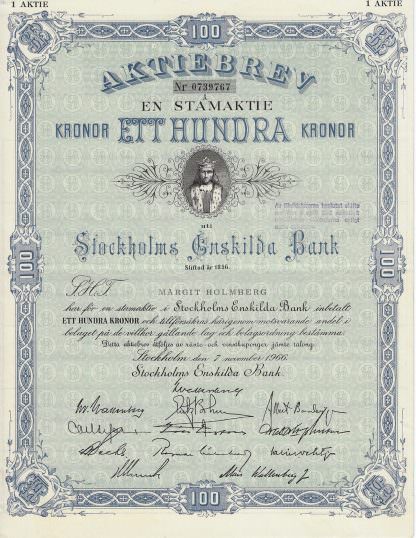 1 AKTIE 1 AKTIE
100
AKTIEBREV
Nr 0739767
å
EN STAMAKTIE
KRONOR ETT HUNDRA KRONOR
uti
Stockholms Enskilda Bank
Stiftad år 1856.
MARGIT HOLMBERG
har för en stamaktie i Stockholms Enskilda Bank inbetalt
ETT HUNDRA KRONOR och tillförsäkras härigenom motsvarande andel i
bolaget på de villkor gällande lag och bolagsordning bestämma.
Detta aktiebrev åtföljes av ränte- och vinstkuponger jämte talong.
Stockholm den 7 november 1966.
Stockholms Enskilda Bank.
100
100
100